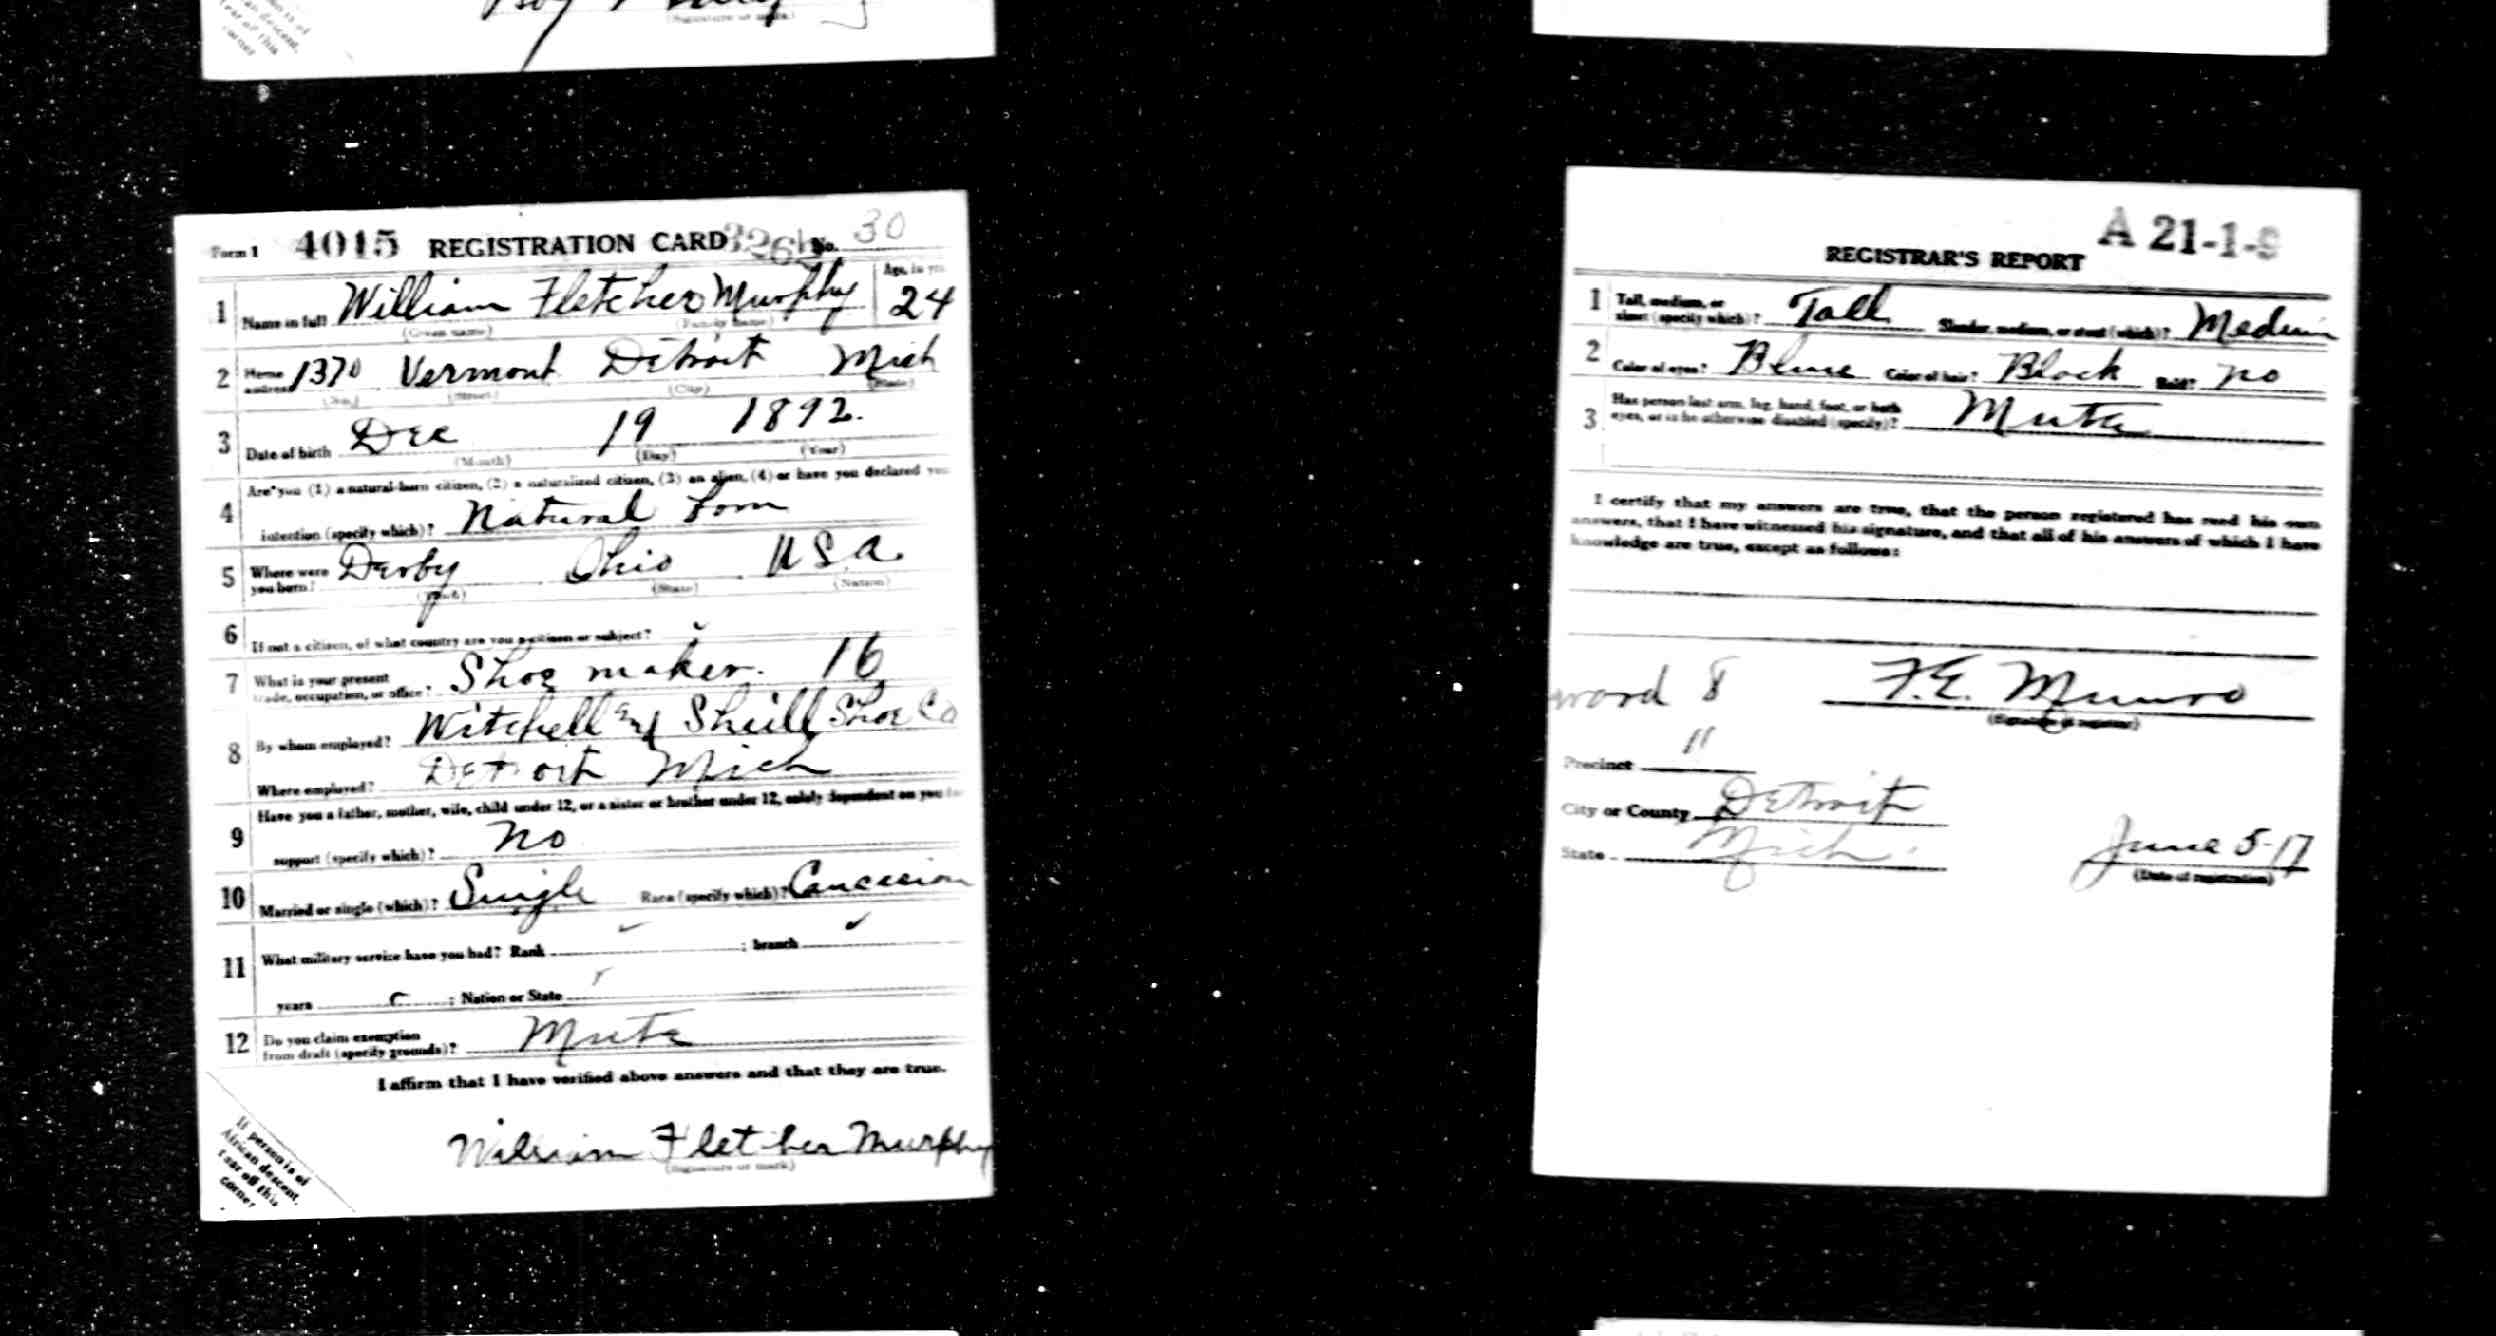 (Signature or mark)
Form 1 4015 REGISTRATION CARD No. 30
1 Name in full William Fletcher Murphy Age, in yrs. 24
(Given name) (Family name)
2 Home address 1370 Vermont Detroit Mich
(No.) (Street) (City) (State)
3 Date of birth Dec 19 1892.
(Month) (Day) (Year)
4 Are you (1) a natural-born citizen, (2) a naturalized citizen, (3) an alien, (4) or have you declared your
intention (specify which)? Natural born
5 Where were you born? Derby Ohio U.S.A.
(Town) (State) (Nation)
6 If not a citizen, of what country are you a citizen or subject?
7 What is your present
trade, occupation, or office? Shoe maker. 16
8 By whom employed? Witchell and Sheill Shoe Co
Where employed? Detroit Mich
9 Have you a father, mother, wife, child under 12, or a sister or brother under 12, solely dependent on you for
support (specify which)? no
10 Married or single (which)? Single Race (specify which)? Caucasian
11 What military service have you had? Rank ; branch
years ; Nation or State
12 Do you claim exemption
from draft (specify grounds)? Mute
I affirm that I have verified above answers and that they are true.
William Fletcher Murphy
(Signature or mark)
If person is of
African descent,
tear off this
corner
A 21-1-9
REGISTRAR'S REPORT
1 Tall, medium, or
short (specify which)? Tall Slender, medium, or stout (which)? Medium
2 Color of eyes? Blue Color of hair? Black Bald? no
3 Has person lost arm, leg, hand, foot, or both
eyes, or is he otherwise disabled (specify)? Mute
I certify that my answers are true, that the person registered has read his own
answers, that I have witnessed his signature, and that all of his answers of which I have
knowledge are true, except as follows:
ward 8 F.E. Munro
(Signature of registrar)
Precinct 11
City or County Detroit
State Mich. June 5-17
(Date of registration)